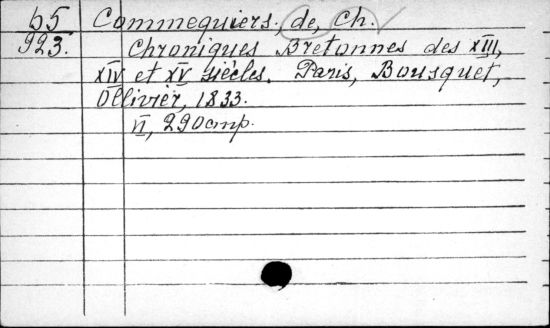 65 Commequiers, de, Ch.
923. Chroniques Bretonnes des XIII,
XIV et XV siècles. Paris, Bousquet,
Ollivier, 1833.
VI, 290 стр.